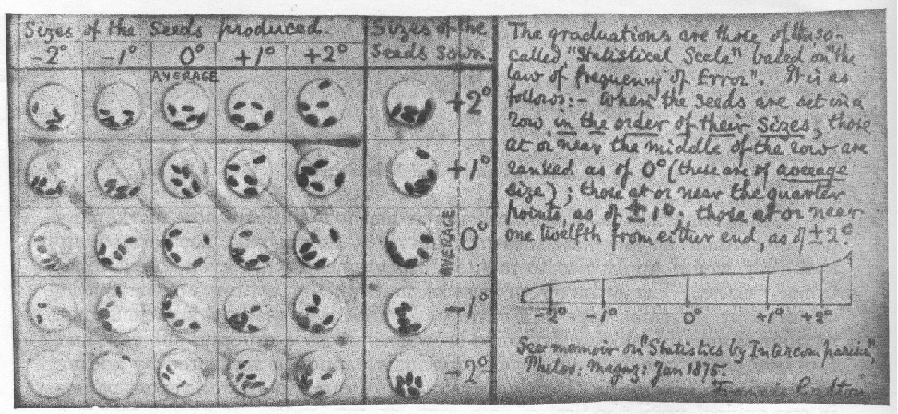 Sizes of the Seeds produced.
-2° -1° 0° +1° +2°
AVERAGE
Sizes of the
Seeds sown.
+2°
+1°
AVERAGE 0°
-1°
-2°
The graduations are those of the so-
called "Statistical Scale" based on "the
law of frequency of Error". It is as
follows:- When the seeds are set in a
row in the order of their sizes, those
at or near the middle of the row are
ranked as of 0° (these are of average
size); those at or near the quarter
points, as of ±1°; those at or near
one twelfth from either end, as of ±2°.
-2° -1° 0° +1° +2°
See memoir on "Statistics by Intercomparison",
Philos: Magaz: Jan 1875.
Francis Galton